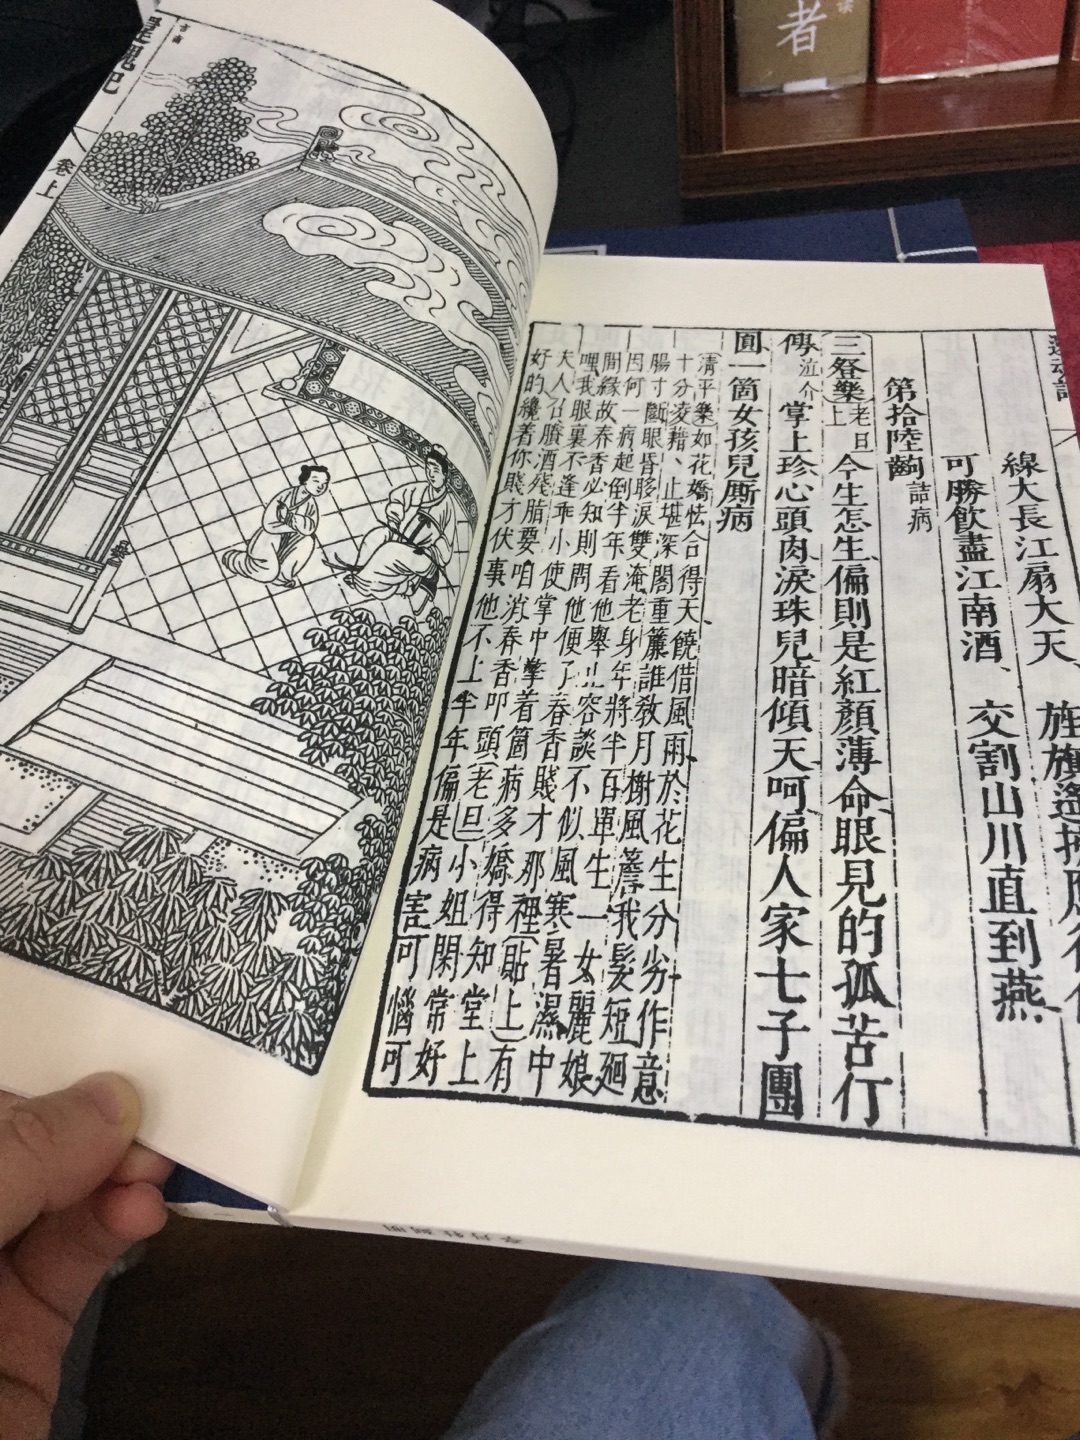 線大長江扇大天 旌旗遙
可勝飲盡江南酒、 交割山川直到燕.
第拾陸齣詰病
三登樂老旦上今生怎生偏則是紅顏薄命眼見的孤苦仃
俜泣介掌上珍心頭肉淚珠兒暗傾天呵偏人家七子團
圓一箇女孩兒厮病
清平樂如花嬌怯合得天饒借風雨於花生分劣作意
十分凌藉、止堪深閣重簾誰敎月榭風簷我髮短廻
腸寸斷眼昏眵淚雙淹老身年將半百單生一女麗娘
因何一病起倒半年看他擧止容談不似風寒暑濕中
間緣故春香必知則問他便了春香賤才那裡貼上有
哩我眼裏不逢乖小使掌中擎着箇病多嬌得知堂上
夫人召賸酒殘脂要咱消春香叩頭老旦小姐閑常好
好的纔着你賤才伏事他不上半年偏是病害可惱可
還魂記
卷上
者